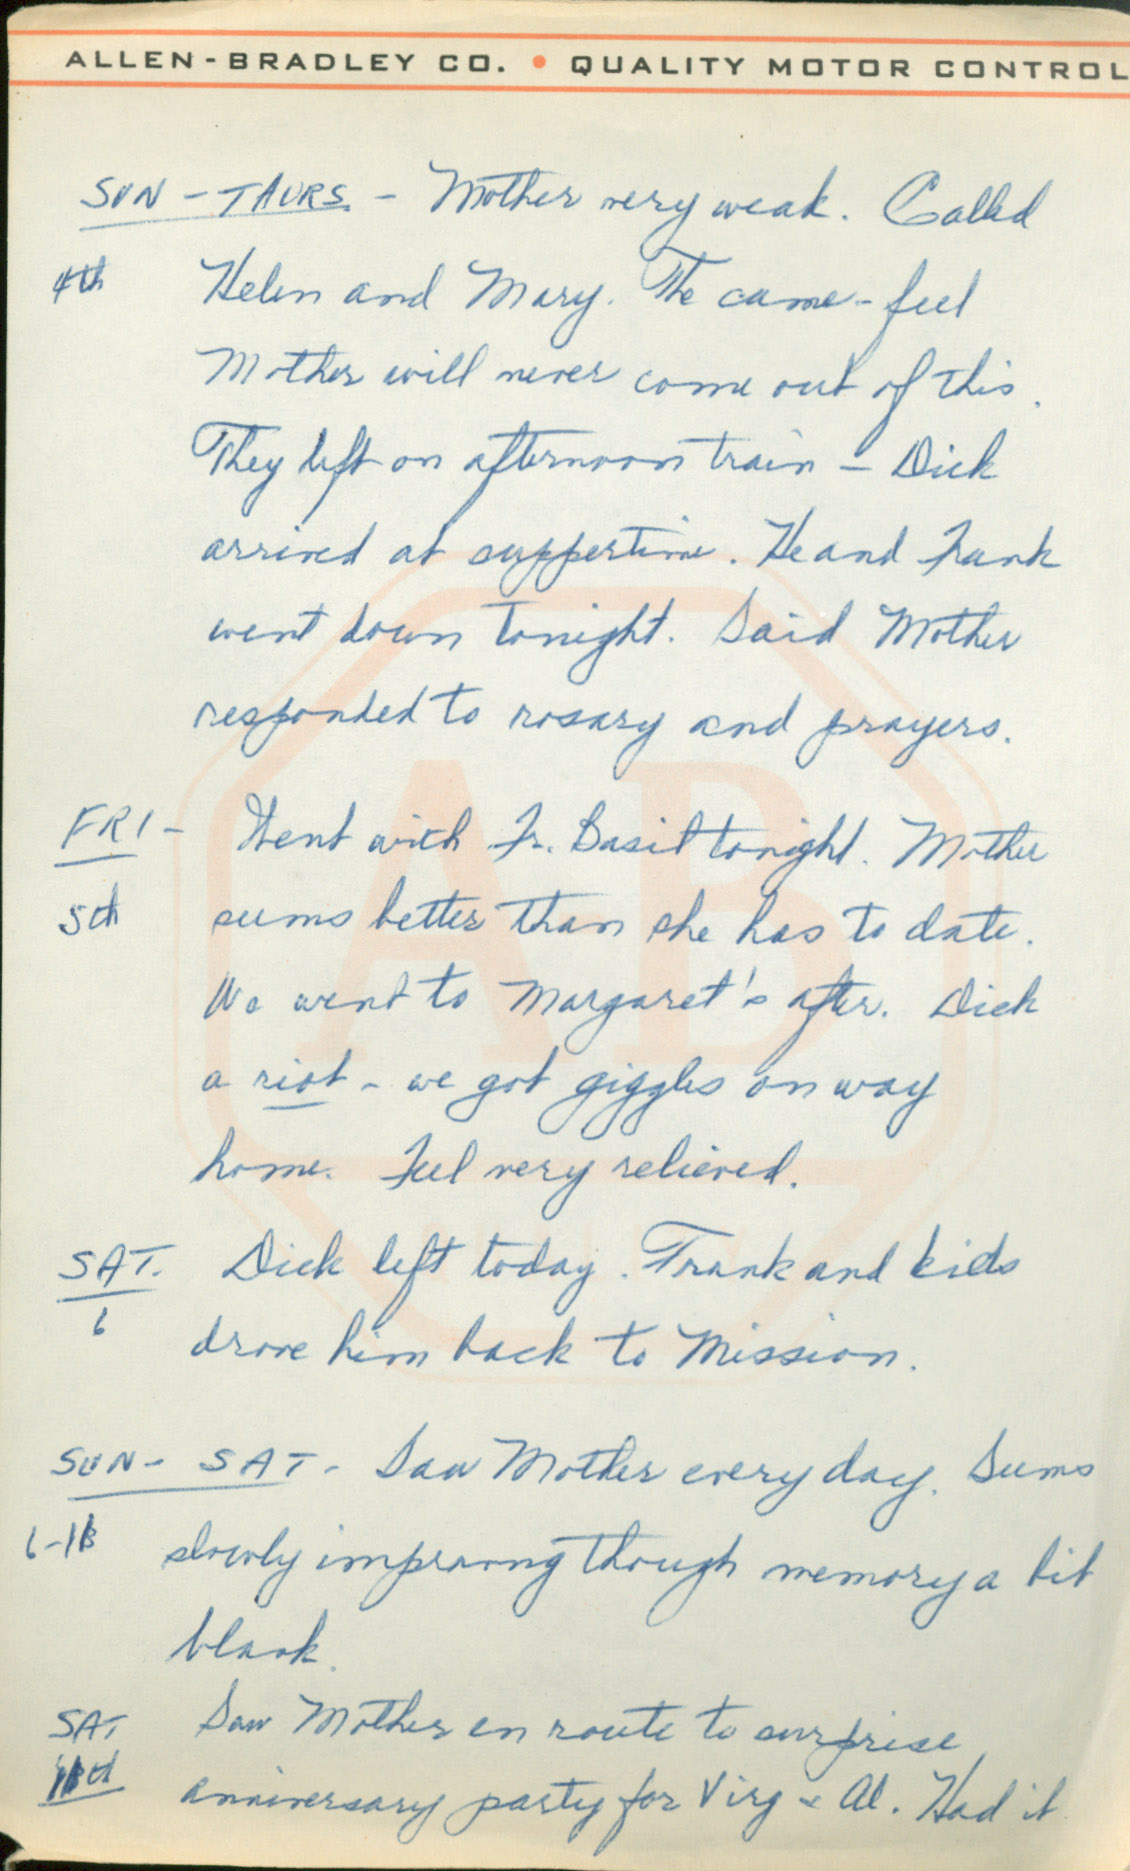 ALLEN-BRADLEY CO. • QUALITY MOTOR CONTROL
SUN - THURS. - Mother very weak. Called
4th Helen and Mary. The came - feel
Mother will never come out of this.
They left on afternoon train - Dick
arrived at suppertime. He and Frank
went down tonight. Said Mother
responded to rosary and prayers.
FRI - Went with Fr. Basil tonight. Mother
5th seems better than she has to date.
We went to Margaret's after. Dick
a riot - we got giggles on way
home. Feel very relieved.
SAT. Dick left today. Frank and kids
6 drove him back to Mission.
AB
SUN - SAT - Saw Mother every day. Seems
6-13 slowly improving though memory a bit
blank.
SAT Saw Mother en route to surprise
anniversary party for Virg & Al. Had it